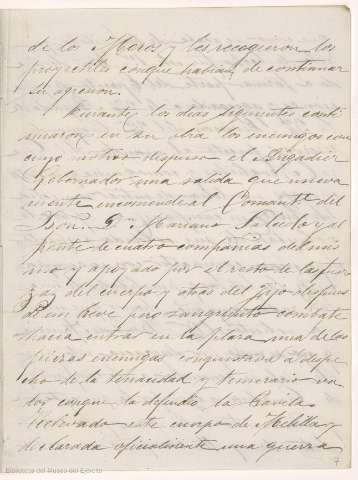 de los Moros y les recogieron los
proyectiles conque habian de continuar
su agresion.
Durante los dias siguientes conti
nuaron en su obra los enemigos con
cuyo motivo dispuso el Brigadier
Gobernador una salida que nueva
mente encomendo al Comante del
Bon. Dn. Mariano Salcedo y al
frente de cuatro compañias del mis
mo y apoyado por el resto de las fuer
zas del cuerpo y otras del Fijo despues
de un breve pero sangriento combate
hacia entrar en la plaza una de las
piezas enemigas conquistada á despe
cho de la tenacidad y temerario va
lor conque la defendio la Cavila.
Relevado este cuerpo de Melilla y
declarada oficialmente una guerra
7
Biblioteca del Museo del Ejército